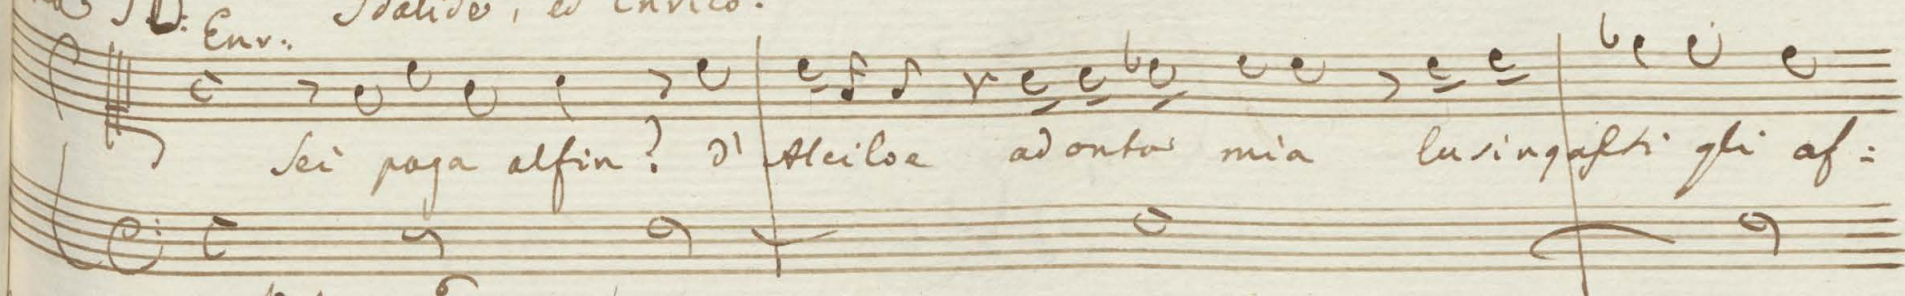 Idalide, ed Enrico.
Enr:
Sei paga alfin? d'Alciloe ad onta mia lusingasti gli af: